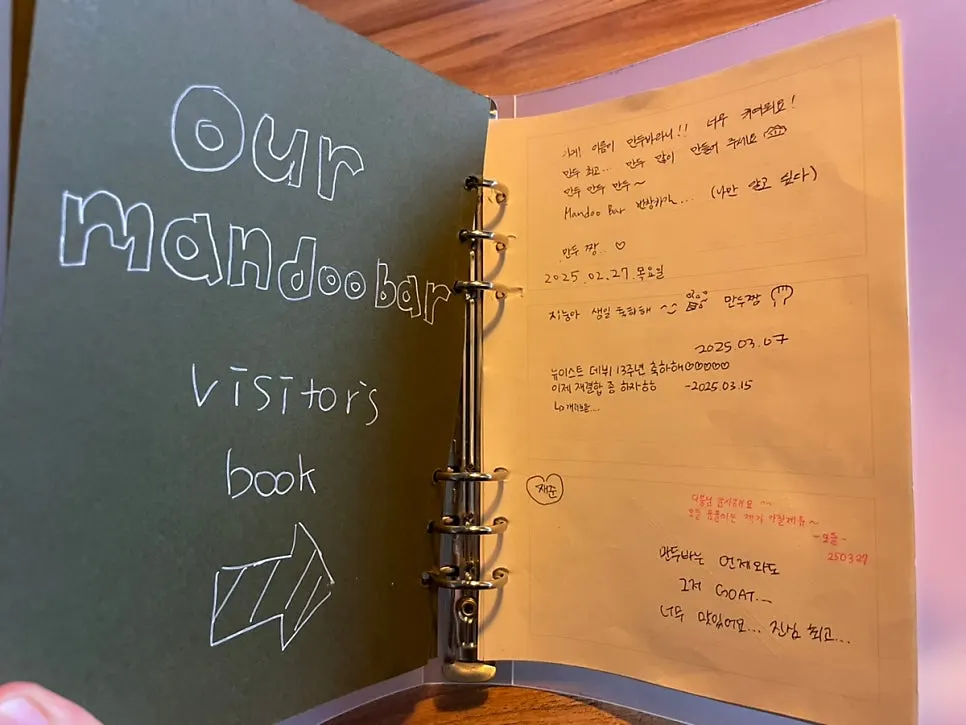 Our
mandoobar
visitor's
book
가게 이름이 만두바라니!! 너무 귀여워요!
만두 최고... 만두 많이 만들어 주세요
만두 만두 만두~
Mandoo Bar 번창하길... (나만 알고 싶다)
만두 짱.. ♡
2025.02.27.목요일
생일 축하해 만두짱
2025.03.07
뉴이스트 데뷔 13주년 축하해♡♡♡♡♡
이제 재결합 좀 하자ㅎㅎ -2025.03.15
재준
감사해요 ^^
오늘
250327
만두바는 언제와도
그저 GOAT...
너무 맛있어요... 진심 최고...